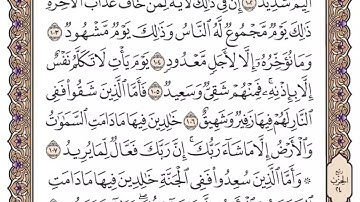 أَلِيمٌ شَدِيدٌ ١٠٢ إِنَّ فِي ذَٰلِكَ لَآيَةً لِّمَنْ خَافَ عَذَابَ الْآخِرَةِ
ذَٰلِكَ يَوْمٌ مَّجْمُوعٌ لَّهُ النَّاسُ وَذَٰلِكَ يَوْمٌ مَّشْهُودٌ ١٠٣
وَمَا نُؤَخِّرُهُ إِلَّا لِأَجَلٍ مَّعْدُودٍ ١٠٤ يَوْمَ يَأْتِ لَا تَكَلَّمُ نَفْسٌ
إِلَّا بِإِذْنِهِ ۚ فَمِنْهُمْ شَقِيٌّ وَسَعِيدٌ ١٠٥ فَأَمَّا الَّذِينَ شَقُوا فَفِي
النَّارِ لَهُمْ فِيهَا زَفِيرٌ وَشَهِيقٌ ١٠٦ خَالِدِينَ فِيهَا مَا دَامَتِ السَّمَاوَاتُ
وَالْأَرْضُ إِلَّا مَا شَاءَ رَبُّكَ ۚ إِنَّ رَبَّكَ فَعَّالٌ لِّمَا يُرِيدُ ١٠٧
۞ وَأَمَّا الَّذِينَ سُعِدُوا فَفِي الْجَنَّةِ خَالِدِينَ فِيهَا مَا دَامَتِ
ربع
الحزب
٢٤